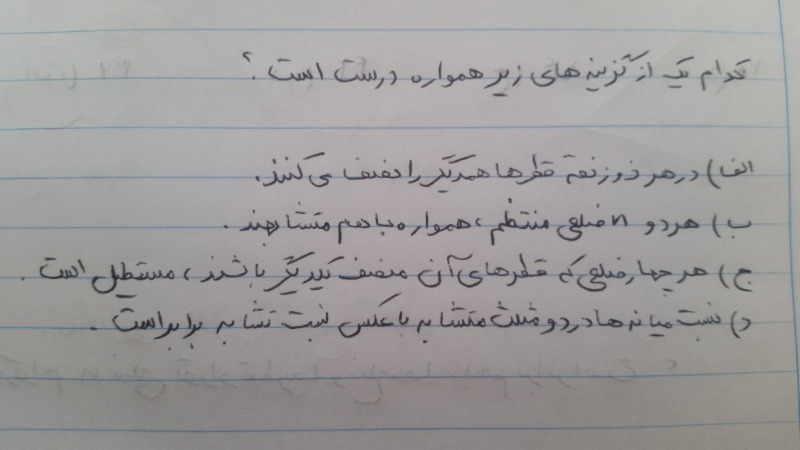 کدام یک از گزینه های زیر همواره درست است ؟
الف) در هر ذوزنقه قطرها همدیگر را نصف می کنند.
ب) هر دو n ضلعی منتظم ، همواره با هم متشابهند .
ج) هر چهارضلعی که قطرهای آن منصف یکدیگر باشند ، مستطیل است .
د) نسبت میانه ها در دو مثلث متشابه با عکس نسبت تشابه برابر است .